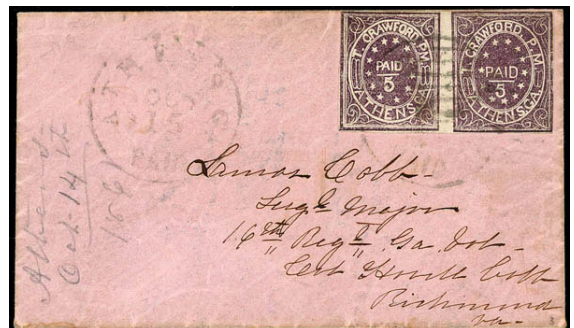 T. CRAWFORD, P.M.
PAID
5
ATHENS, GA.
T. CRAWFORD, P.M.
PAID
5
ATHENS, GA.
ATHENS GA
OCT
15
PAID
Athens
Oct 14th
1861
Lamar Cobb -
Sergt Major
16th Regt Ga Vol -
Howell Cobb
Richmond
Va -